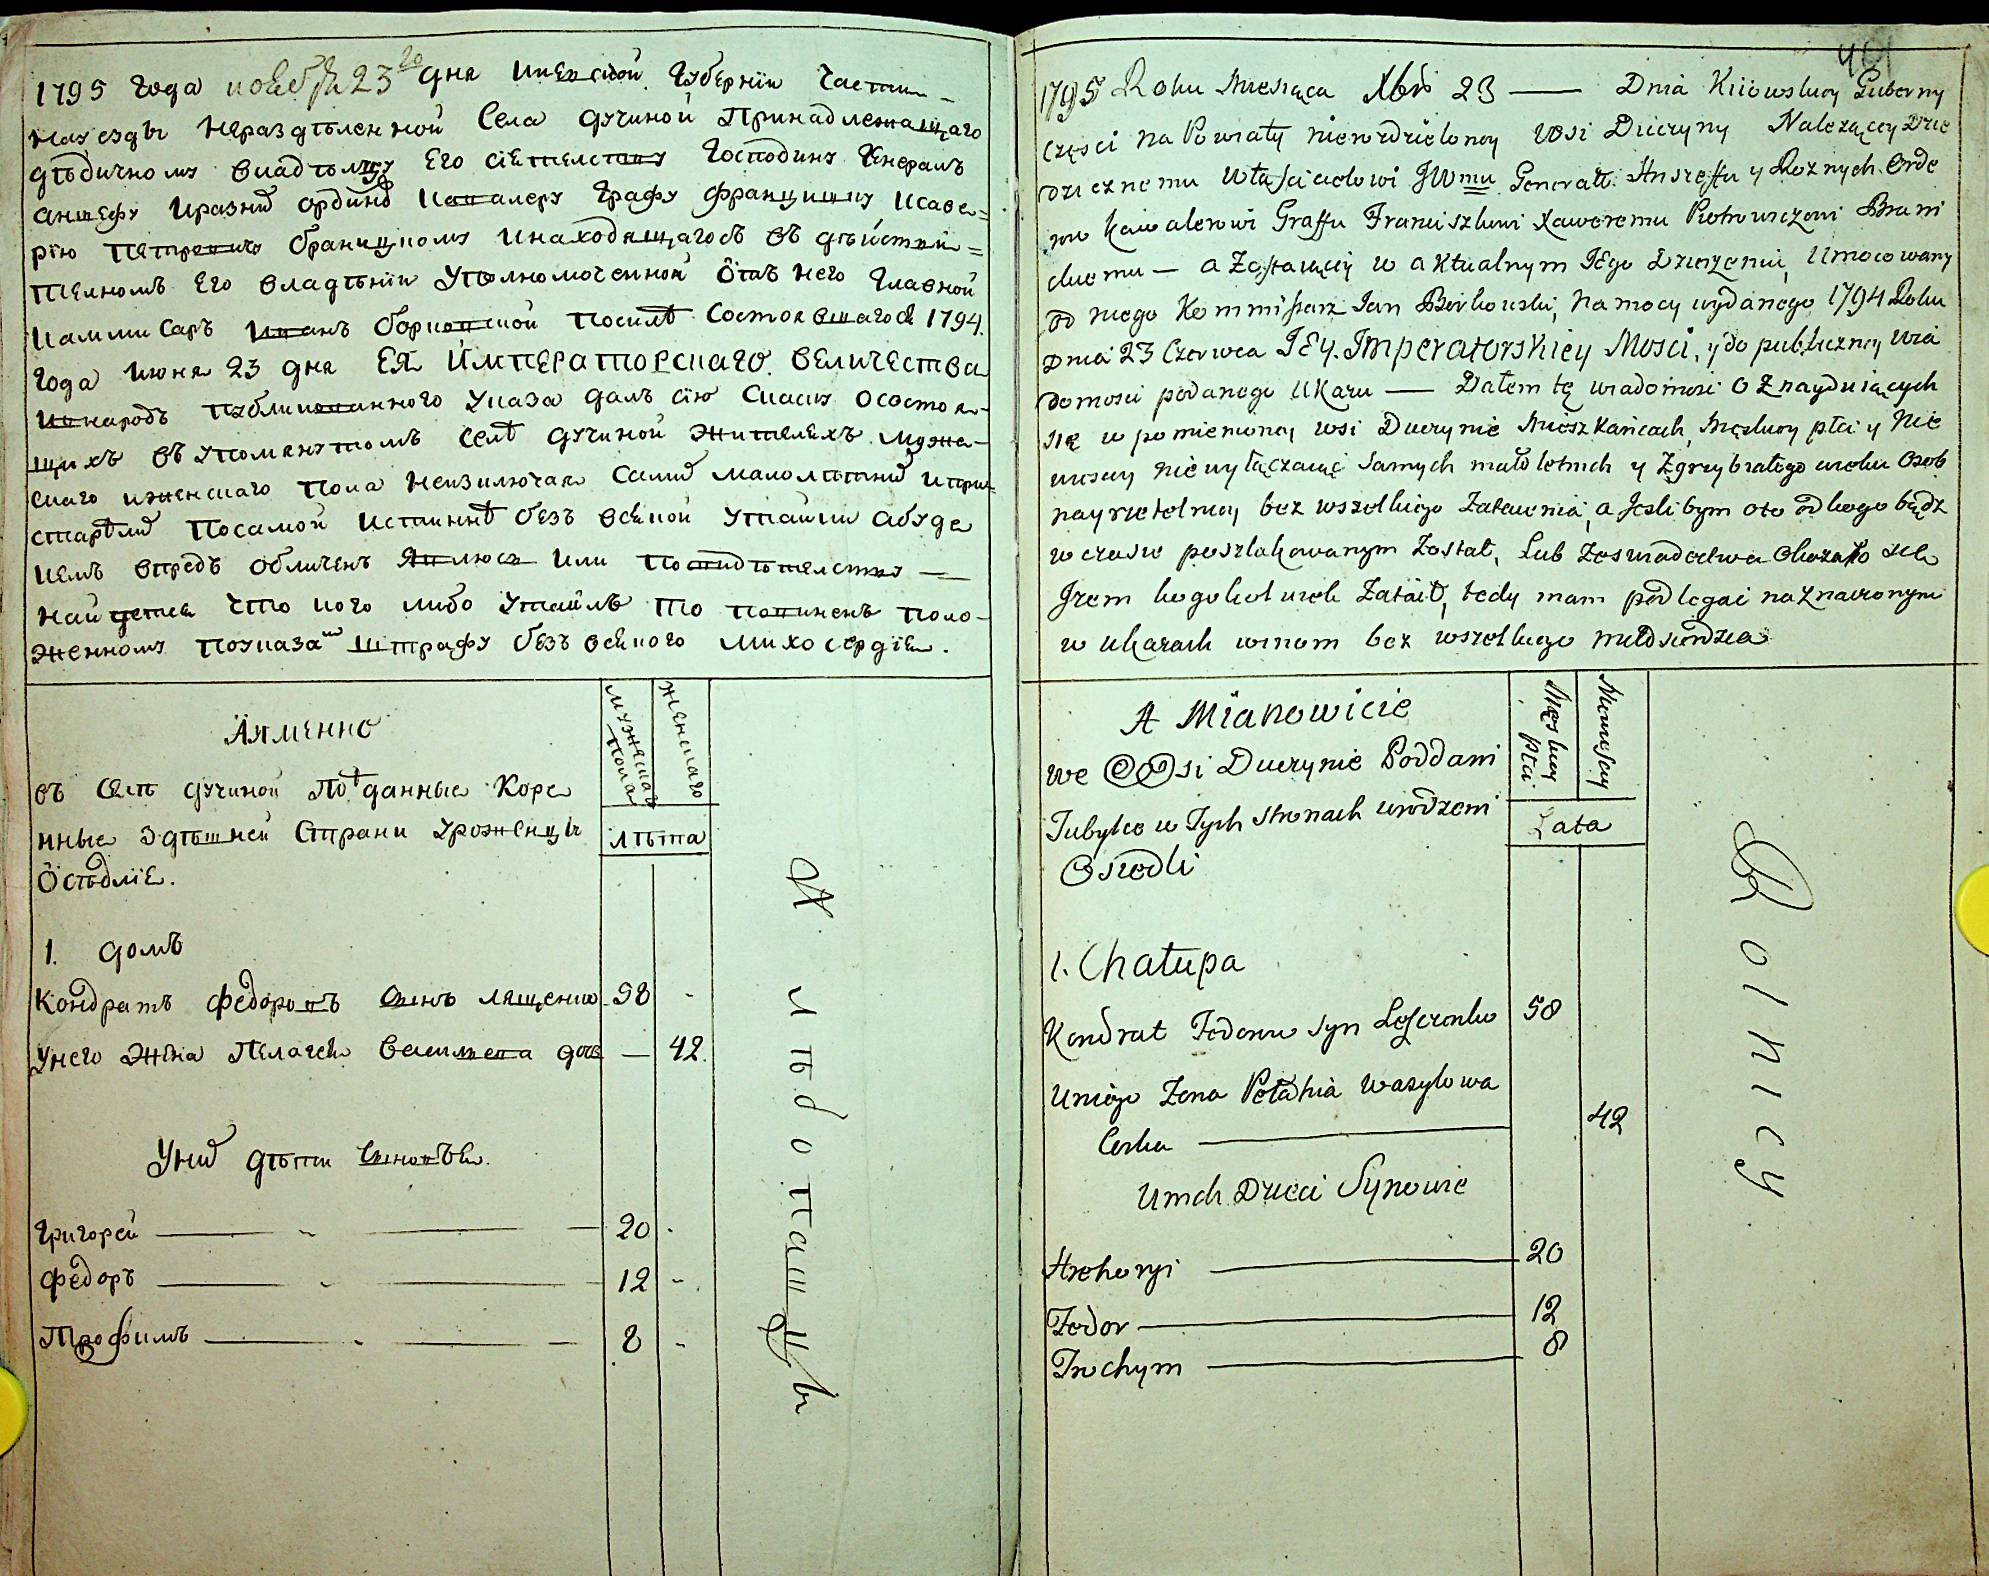 1795 года ноября 23го дня Киевской Губернїи Части
На уезды Нераздѣленной Села Дучиной Принадлежащаго
дѣдичному владѣлцу Его сїетелству Господину Генералъ
аншефу и разныхъ ординовъ Кавалеру Графу Францишку Ксаве=
рїю Петровичу Браницкому и находящагось въ дѣйстви=
телномъ Его владѣнїи Уполномоченной Ѿ него Главной
Каммисаръ Иванъ Борковской После Состоявшагося 1794.
Года Июня 23 дня ЕЯ ИМПЕРАТОРСКАГО ВЕЛИЧЕСТВА
и в народъ публикованного Указа далъ сїю Сказку О состоя-
щихъ въ упомянутомъ Селѣ дучиной жителехъ муже-
скаго и женскаго пола Не изключая Самихъ малолѣтнихъ и при
старѣлихъ По самой истиннѣ безъ всякой утайки а буде
кемъ впредъ обличенъ явлюся или по свидѣтелству
Найдется что кого либо утаилъ то повиненъ поло-
женному по указамъ штрафу безъ всякого милосердїя.
А имменно
въ Селѣ дучиной Подданные Коре
нные Здѣшней Страни Уроженцы
Осѣдлїе.
мужеска
пола
женскаго
лѣта
1. домъ
Кондратъ Федоровъ Синъ Лященко 58 -
У него Жена Пелагея Василиева дочь — 42.
У них дѣти Синовья.
Григорей 20 -
Федоръ 12 -
Трофимъ 8 -
Хлѣбопашцы
401
1795 Roku Miesiąca Xbrś 23 — Dnia Kiiowskiey Guberny
Części na Powiaty nierozdzieloney Wsi Duczyny Należącey Dzie
dzicznemu Właścicielowi JWmu Generałł. Anszeffu y Roznych Orde
row Kawalerowi Graffu Franciszkowi Xaweremu Piotrowiczowi Brani
ckiemu — a Zostaiącey w aktualnym Iego Dzierżeniu, Umocowany
od niego Kommissarz Jan Borkowski, na mocy wydanego 1794 Roku
Dnia 23 Czerwca IEy. Imperatorskiey Mosci, y do publiczney wia
domosci podanego Ukazu — Dałem tę wiadomosc o Znayduiących
się w pomienioney wsi Duczynie Mieszkańcach, Męskiey płci y Nie
wiescy nie wyłączaiąc samych małoletnich y Zgrzybiałego wieku Osob
nayrzetelniey bez wszelkiego Zataienia, a Jesli bym oto od kogo bądz
w czasie poszlakowanym Został, Lub Zeswiadectwa Okazało się
Jżem kogokolwiek Zataił, tedy mam podlegać naznaczonym
w ukazach winom bez wszelkiego miłosierdzia
A Mianowicie
we Wsi Duczynie Poddani
Tubylce w Tych Stronach urodzeni
Osiedli
Męskiey
płci
Niewieściey
Lata
1. Chałupa
Kondrat Fedorow syn Leszczenko 58
Uniego Żona Pełahia Wasylowa
Corka 42
Unich Dzieci Synowie
Hrehoryi 20
Fedor 12
Trochym 8
Rolnicy